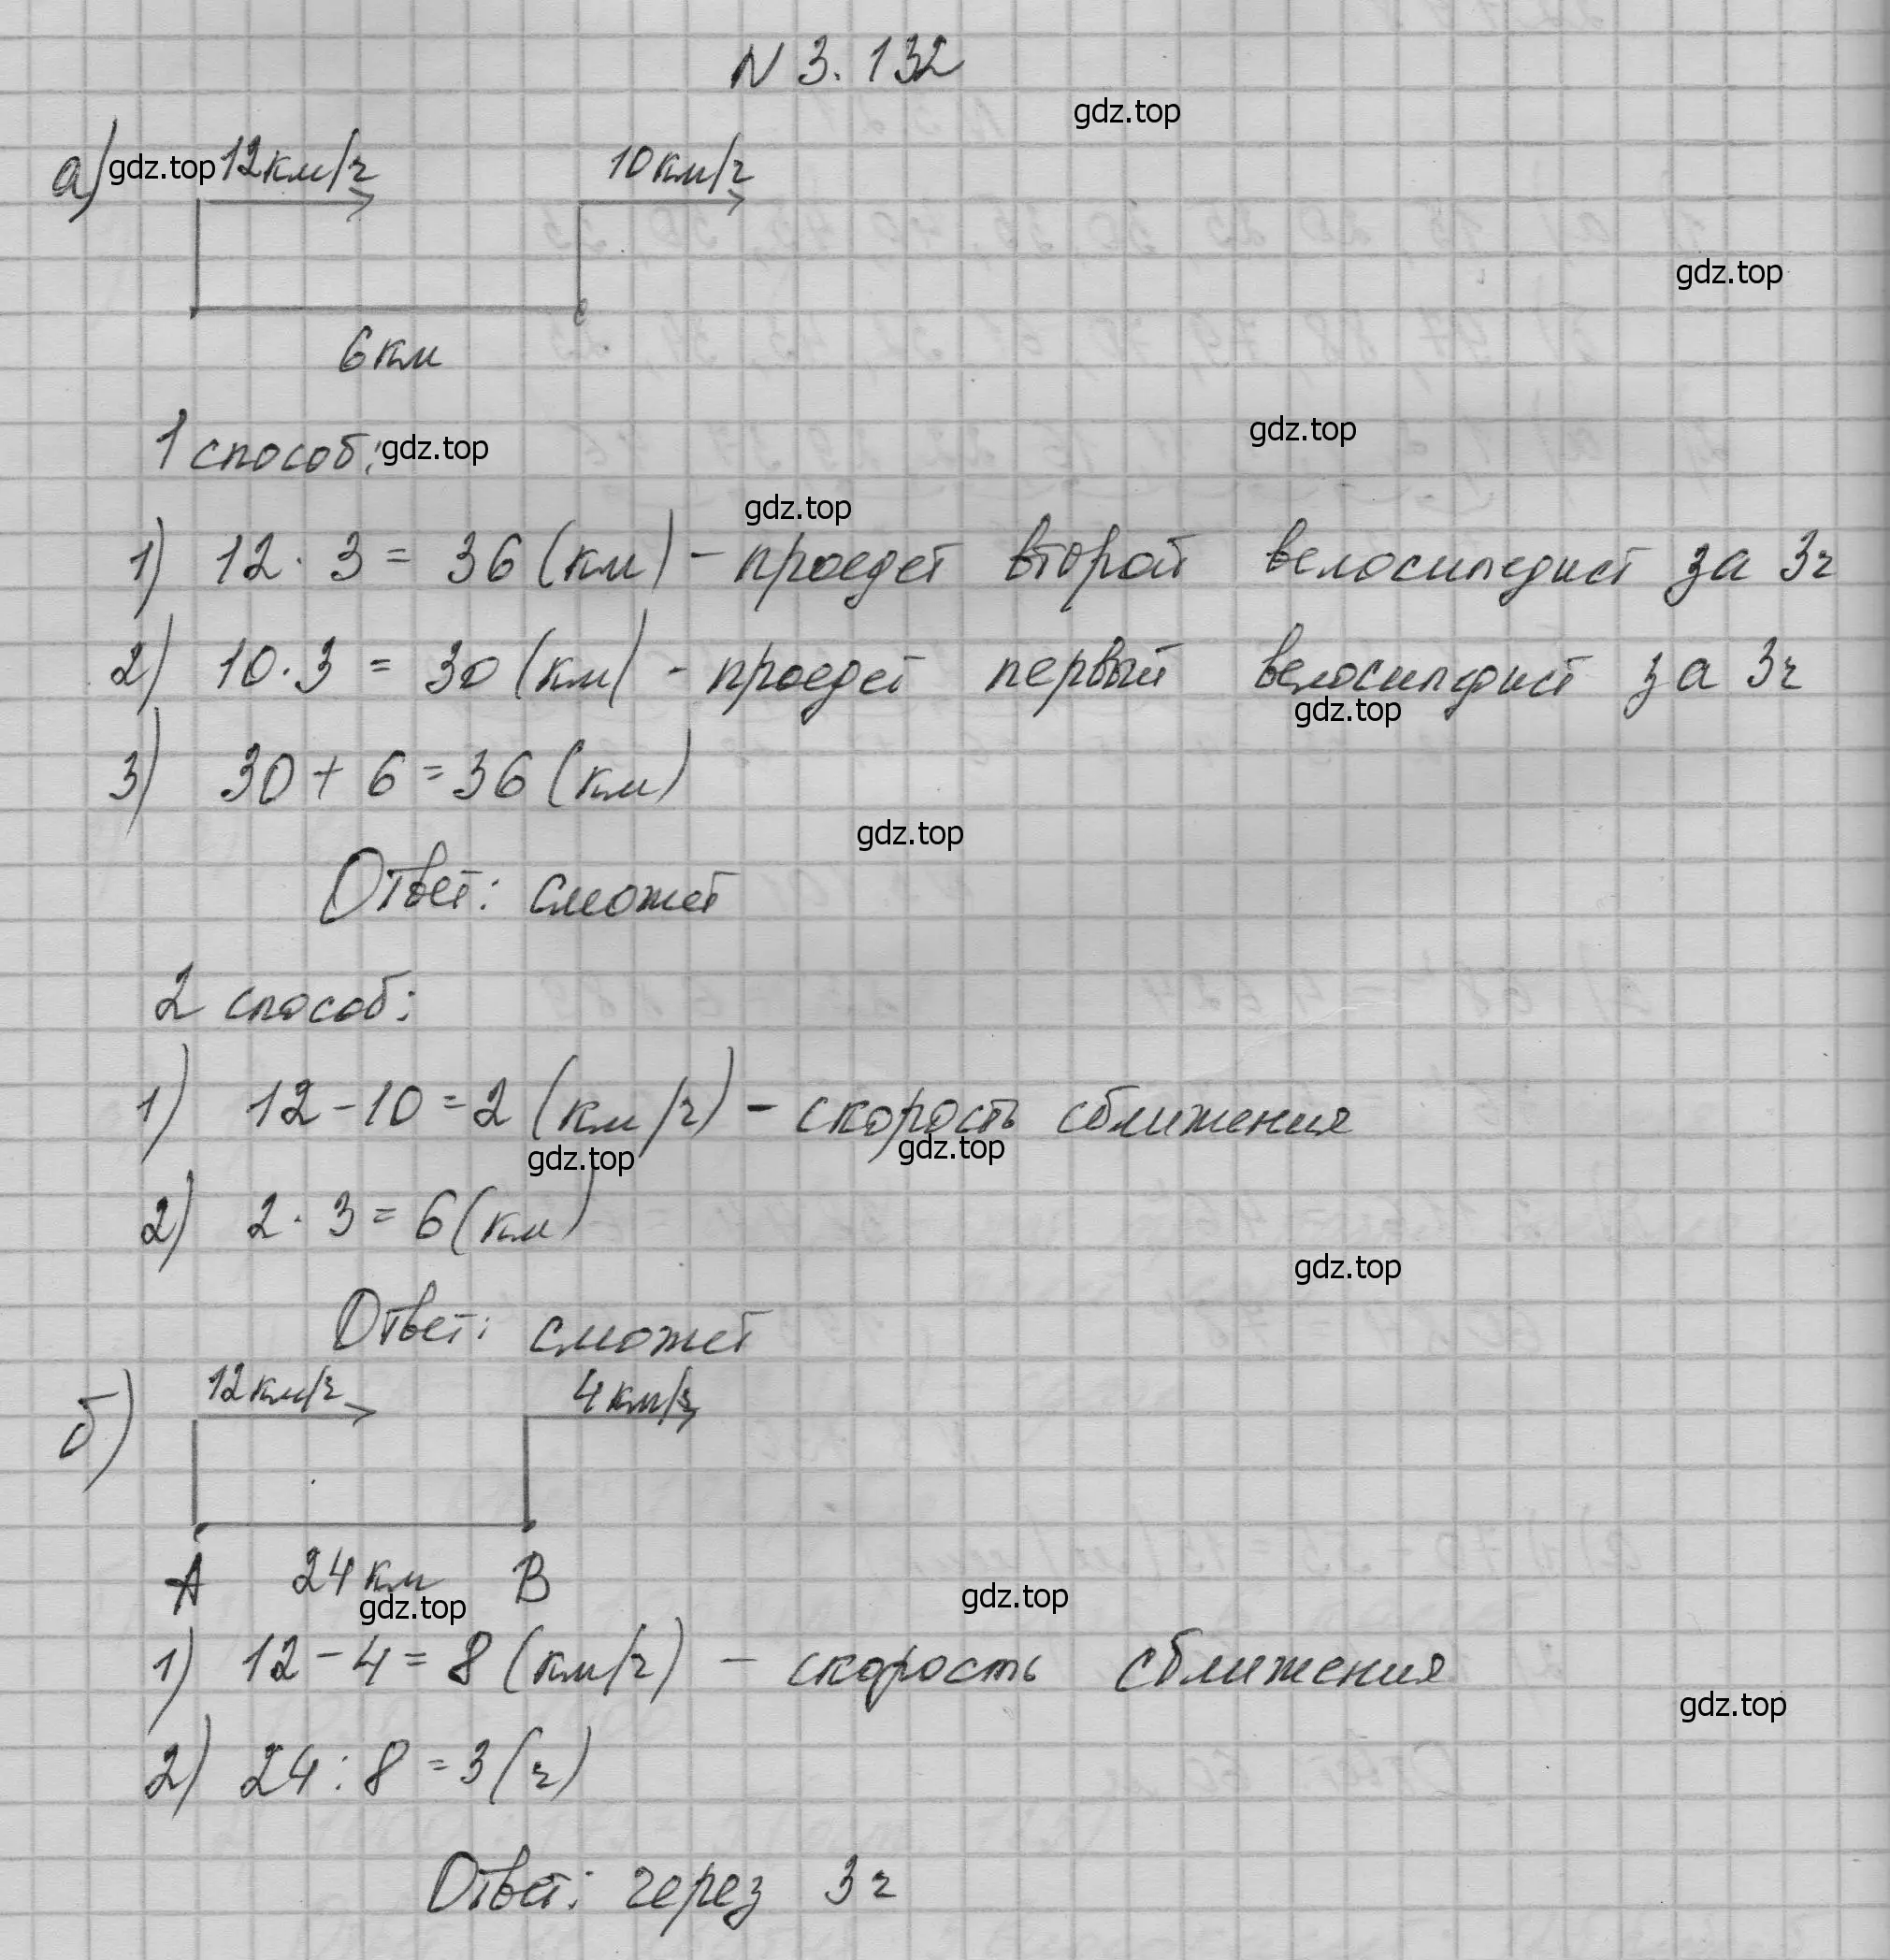 N 3.132
gdz.top
а) gdz.top 12км/ч 10км/ч
gdz.top
6км
1 способ: gdz.top
gdz.top
gdz.top
1) 12 · 3 = 36 (км) - проедет второй велосипедист за 3ч
2) 10 · 3 = 30 (км) - проедет первый велосипедист за 3ч
gdz.top
3) 30 + 6 = 36 (км)
gdz.top
Ответ: сможет
2 способ:
1) 12 - 10 = 2 (км/ч) - скорость сближения
gdz.top gdz.top
2) 2 · 3 = 6 (км)
gdz.top
Ответ: сможет
б) 12км/ч 4км/ч
А 24км В
gdz.top gdz.top
1) 12 - 4 = 8 (км/ч) - скорость сближения
gdz.top
2) 24 : 8 = 3 (ч)
Ответ: через 3ч